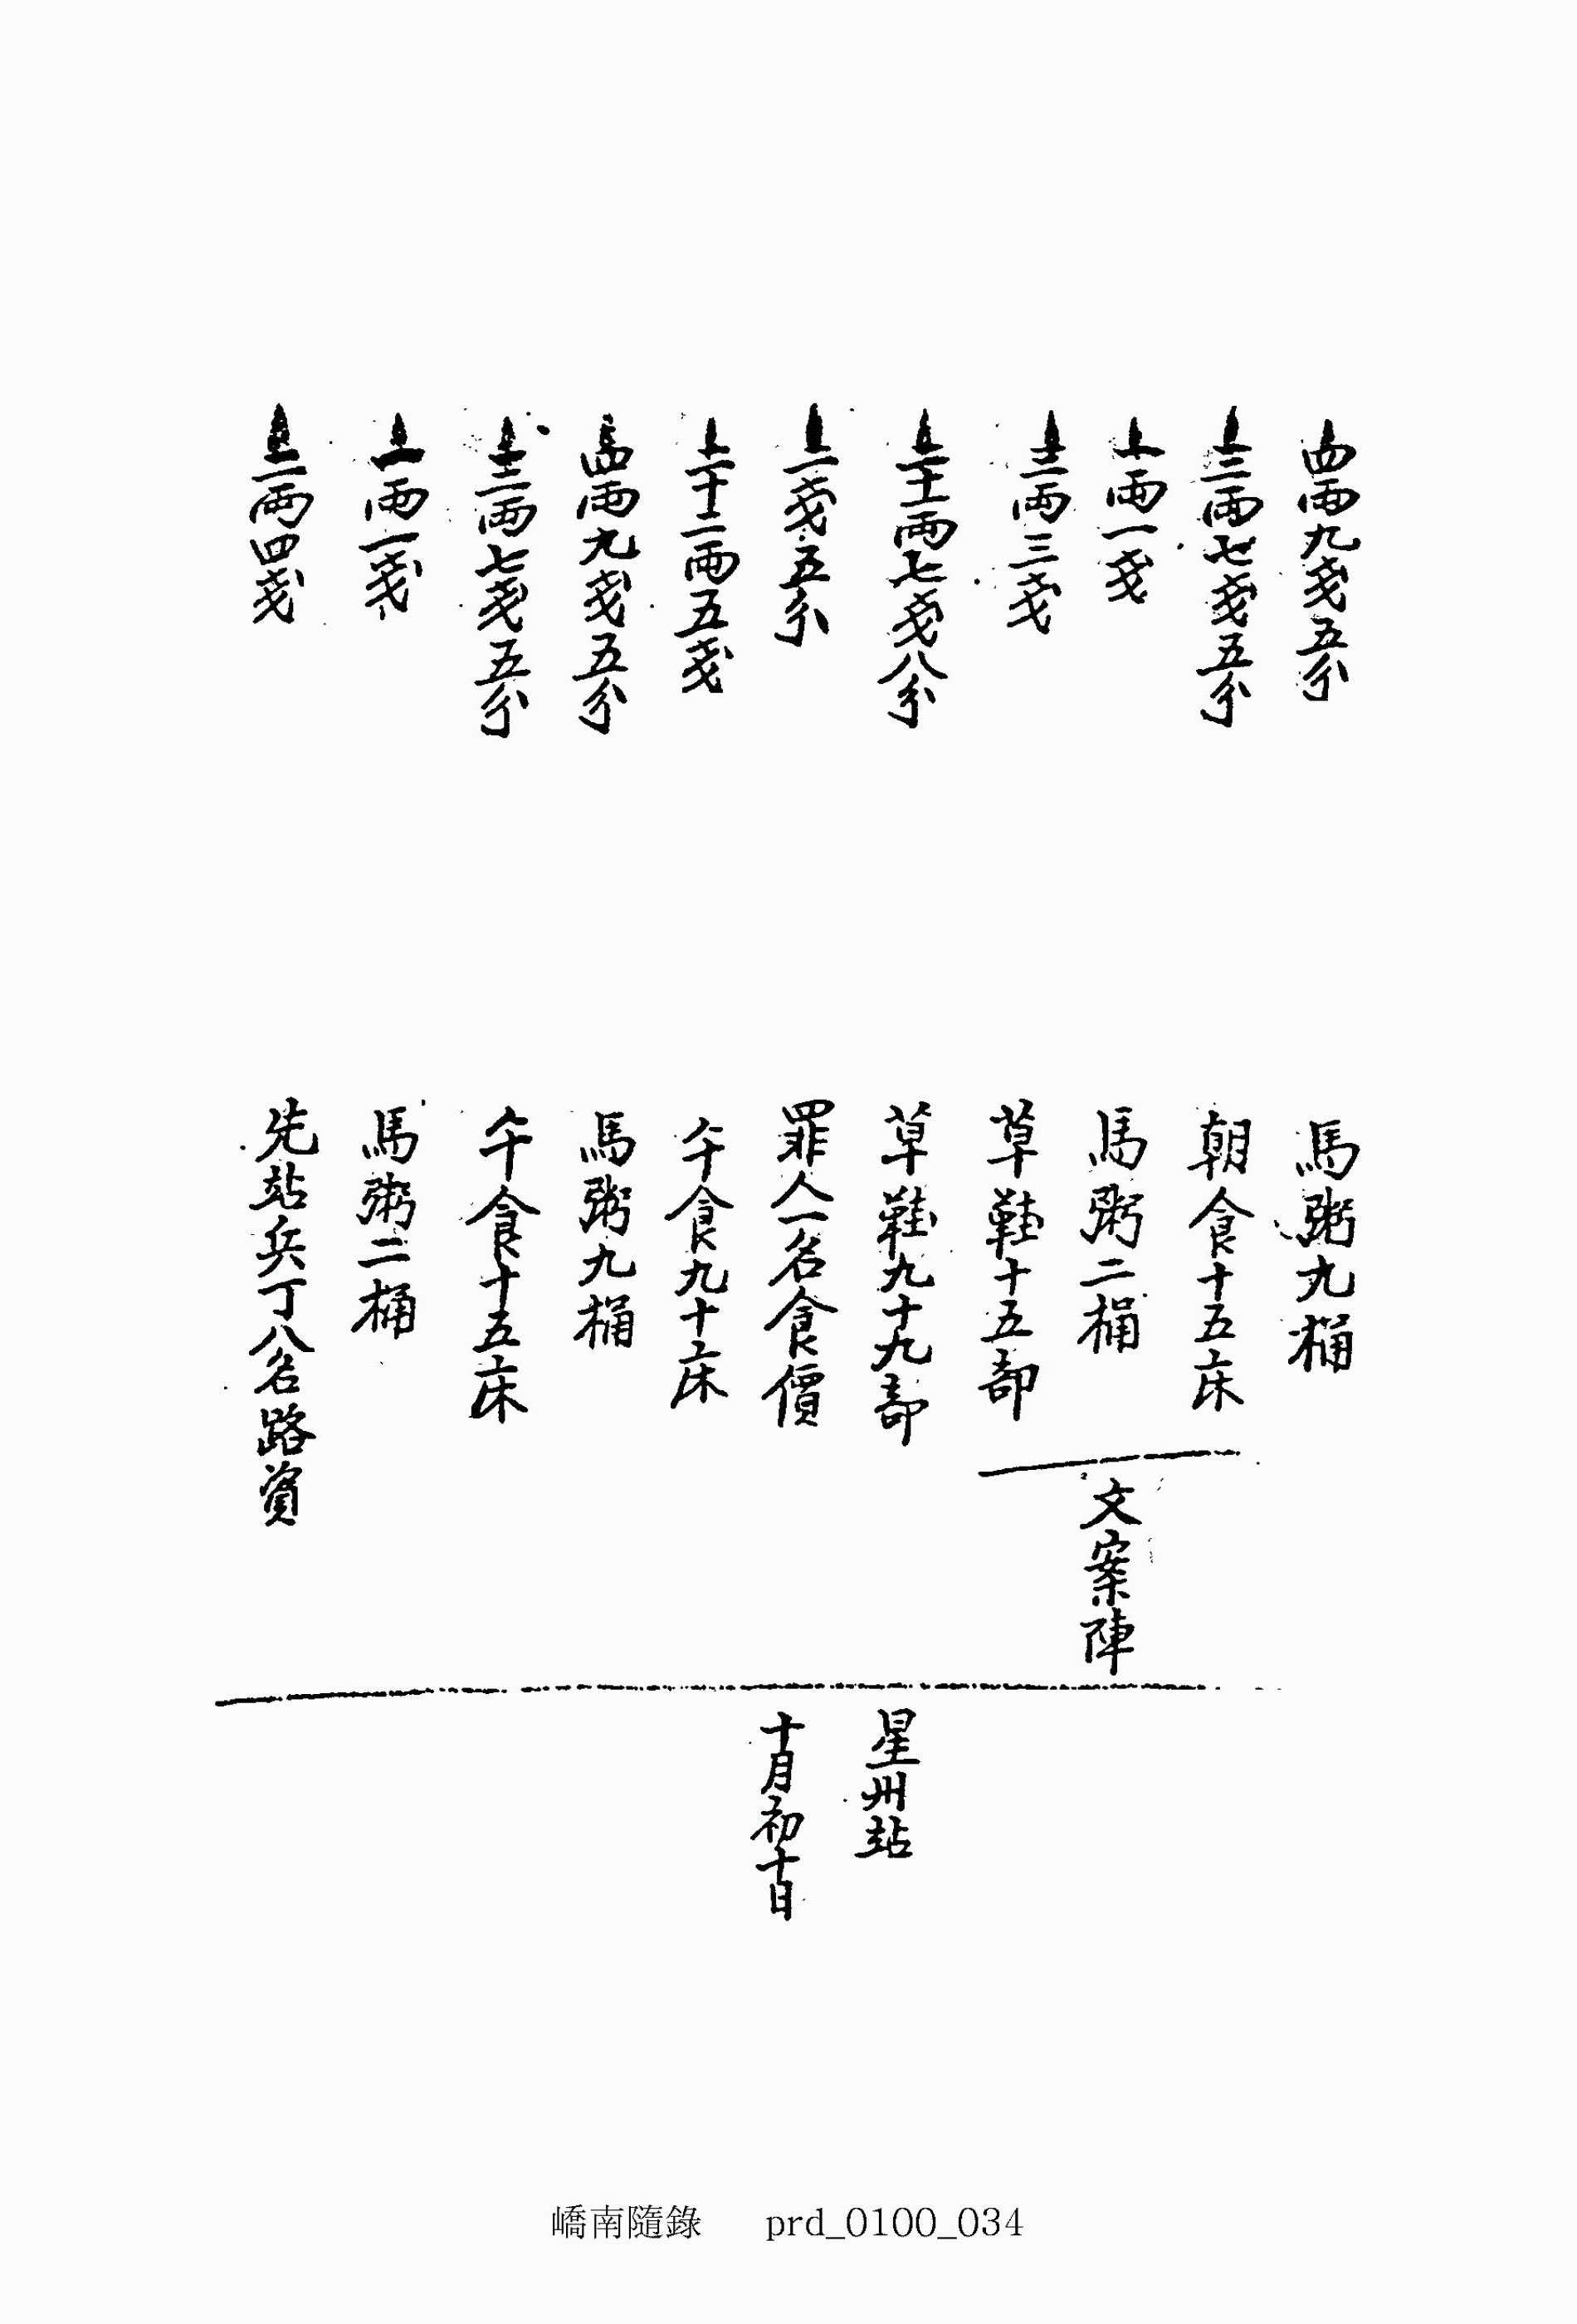 四両九戔五分 馬粥九桶
三両七戔五分 朝食十五床
一両一戔 馬粥二桶
三両三戔 草鞋十五部
文案陣
二十一両七戔八分 草鞋九十九部
二戔五分 罪人一名食價
二十二両五戔 午食九十床
四両九戔五分 馬粥九桶
三両七戔五分 午食十五床
一両一戔 馬粥二桶
二両四戔 先站兵丁八名路資
星州站
十月初十日
嶠南隨錄 prd_0100_034